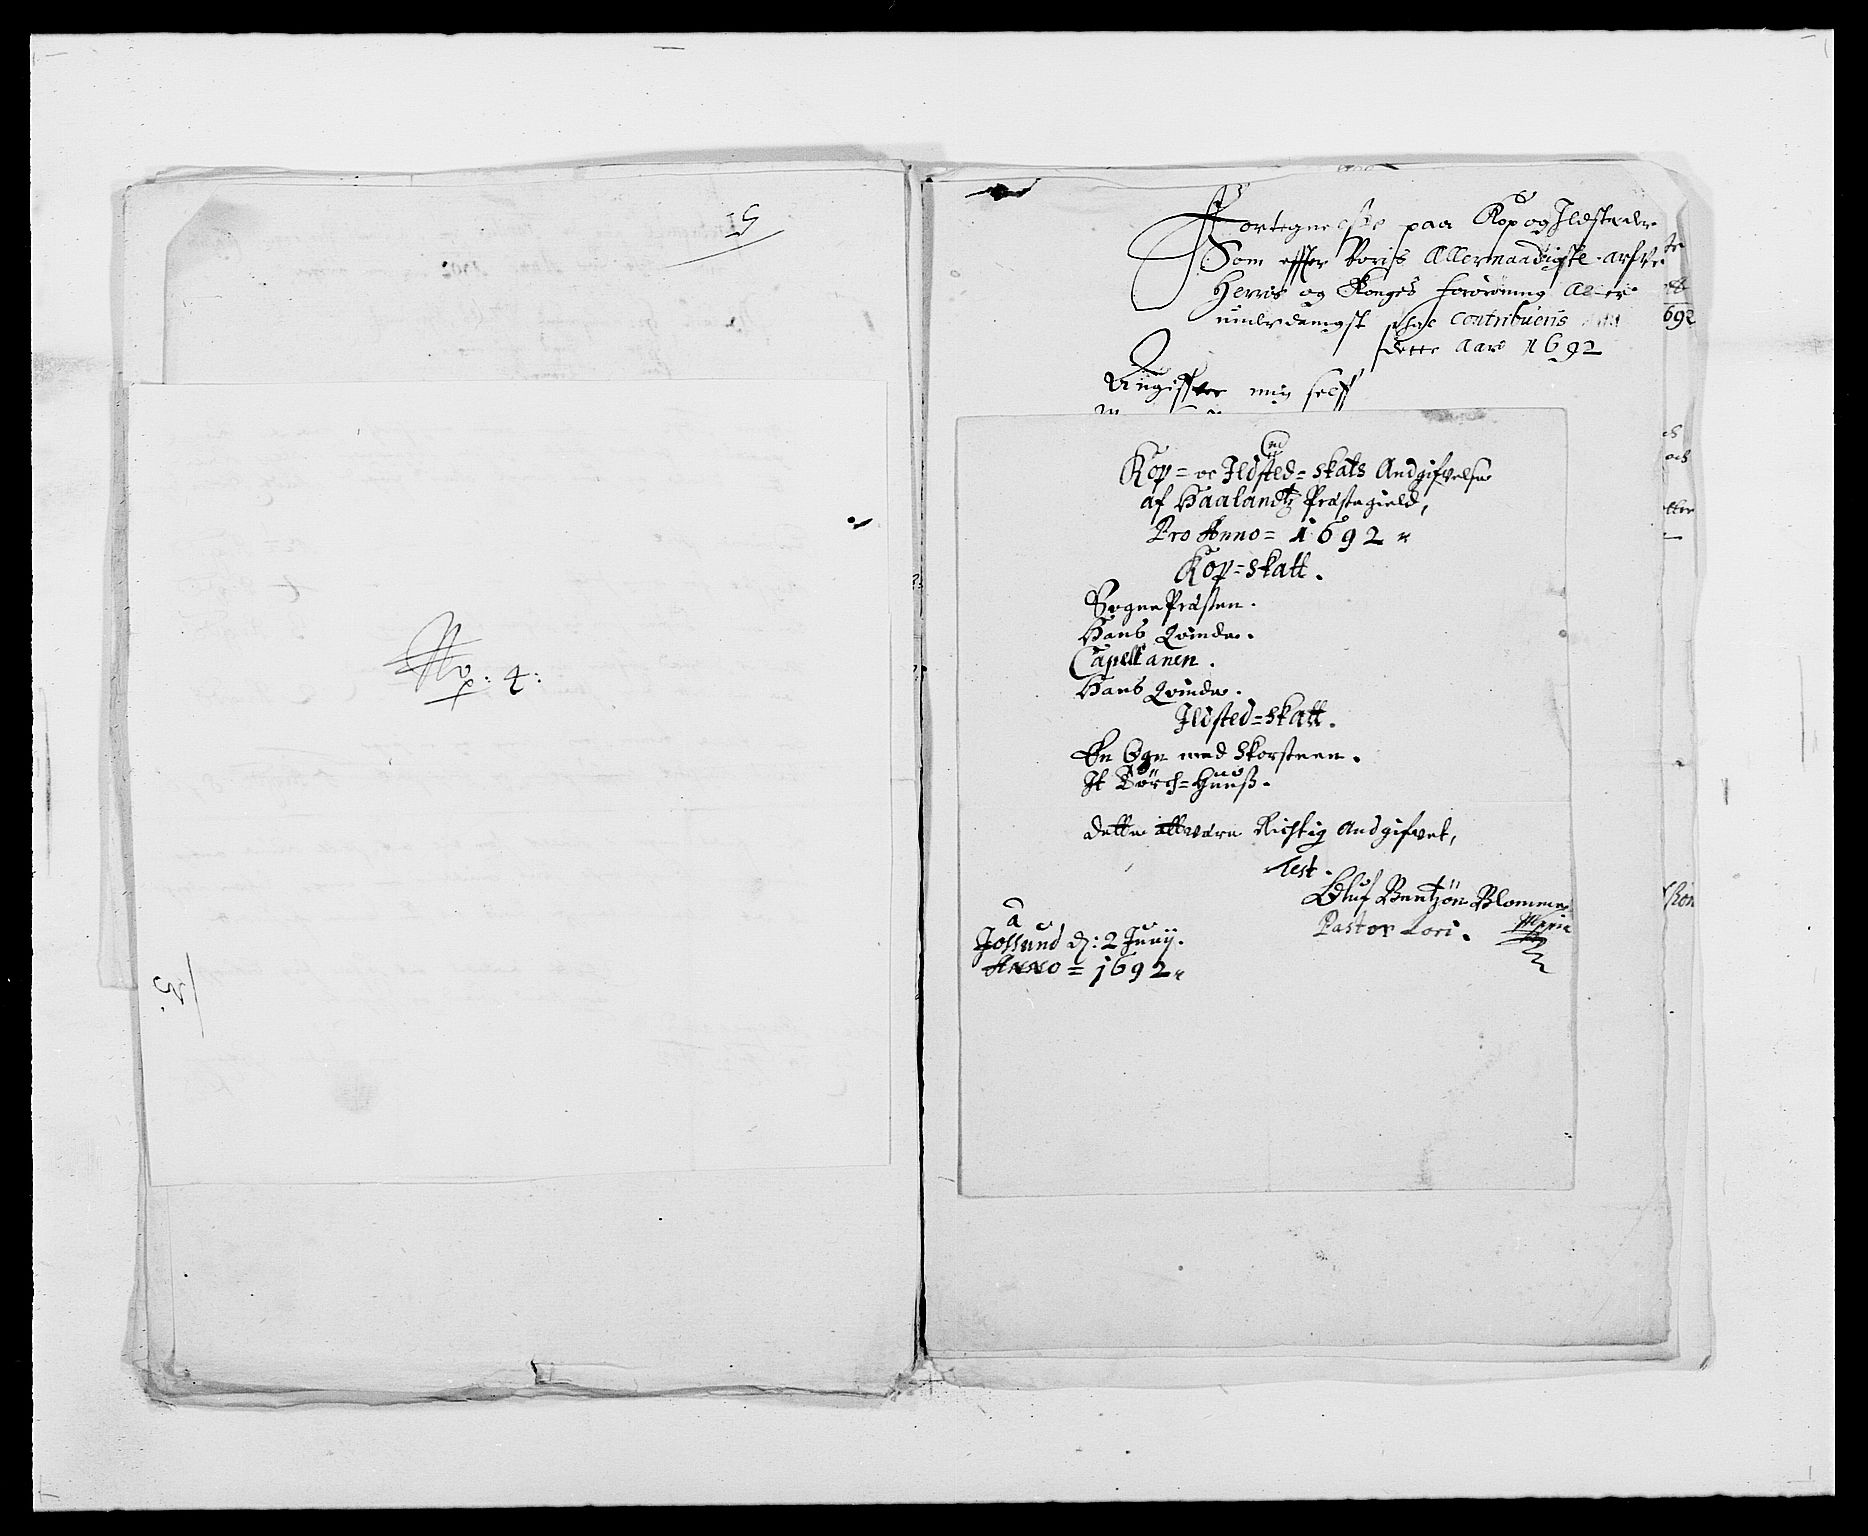 No: 4:
Fortegnelse paa Kop og Ildsteder
Som effter Voris Allernaadigste arfve
Herris og Konges forordning Aller
underdanigst schal Contribueris
dette Aar 1692
Angiffver min self
692
Kop= oc Ildsted=skats Andgifvelse
af Haalandtz Præstegield,
Pro Anno= 1692
Kop=skatt.
SognePræsten.
Hans Qvinde.
Capellanen.
Hans Qvinde.
Ildsted=skatt.
En Ogn med Skorsteen.
It Börch=Huuß.
dette att være Richtig Andgifvet,
Test.
Oluf Bentzön Blomme
Pastor Loci. Mppria
a
Jossund d: 2 Junij.
Anno = 1692